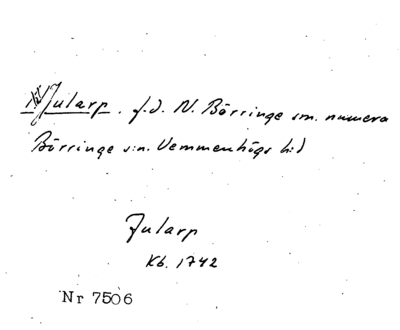 Jularp. f.d. N. Börringe sn. numera
Börringe s:n. Vemmenhögs hd
Jularp
Kb. 1742
Nr 7506